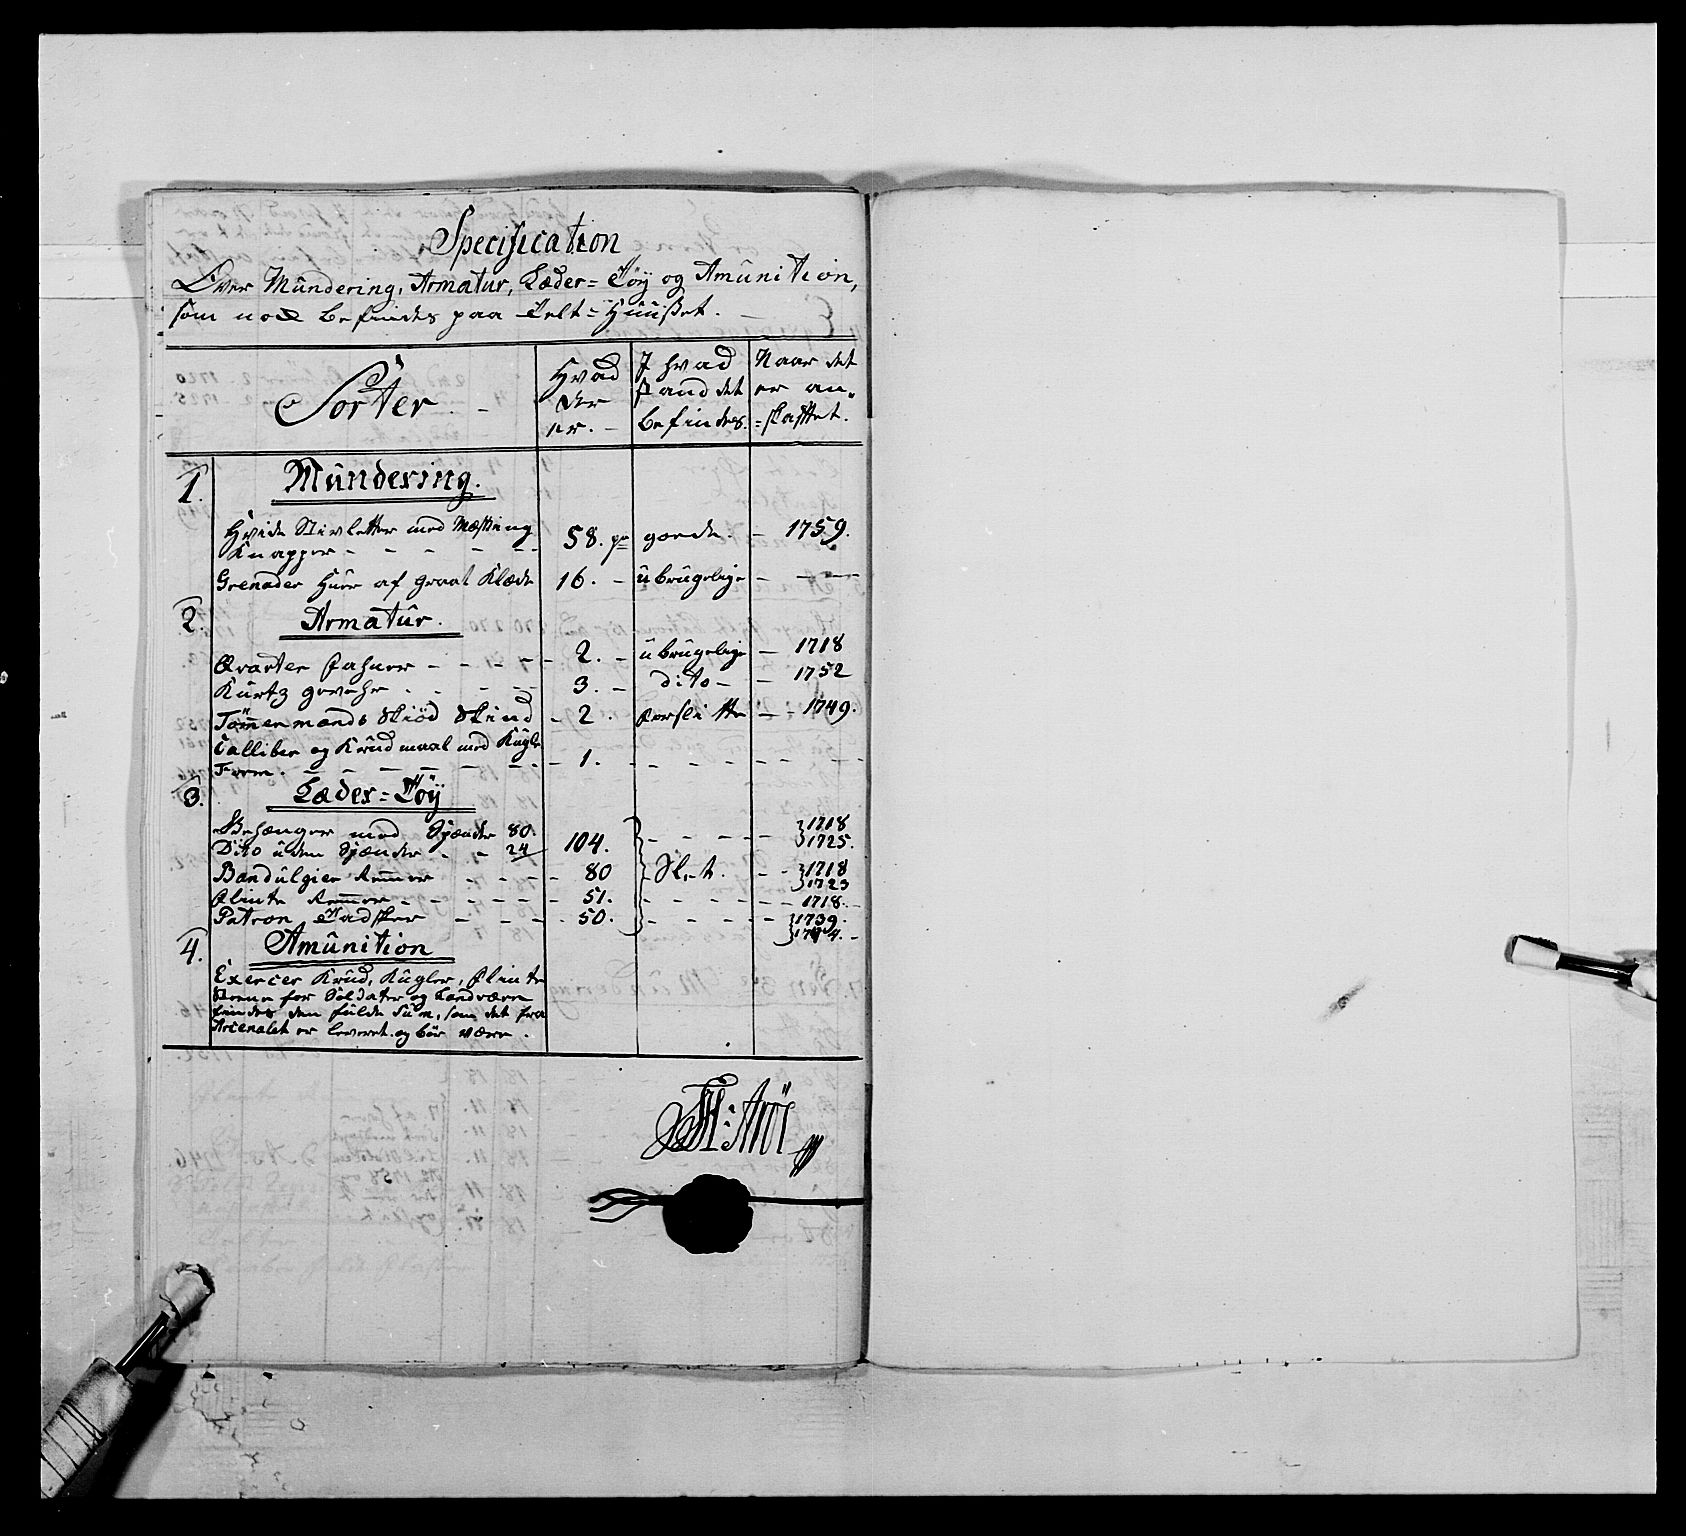 Specification
Over Mundering, Armatur, Læder=Töy og Amunition,
som nock befindes paa Telt=Huuset.
Sorter
Hvad
der
er.
J hvad
stand det
befindes.
Naar det
er an-
=skaffet.
1. Mundering.
Hvide Stivletter med Mæssing
Knapper - - - - - - 58. pr goede. - 1759.
Grenader Huer af graat Klæde 16. - ubrugelige - - - -
2. Armatur.
Qvarter Fahner - - - - - 2. - ubrugelige - 1718
Kurtz gevehr - - - - 3. - dito - - 1752
Tömmermands Skiöd Skind - 2. forslitte - - 1749.
Calliber og Krudmaal med Kugle
Form. - - - - - - - 1. - - - - - - -
3. Læder=Töy
Behænger med Spænder 80.
Dito uden Spænder - - 24 104. - - - - - 1718 1725.
Bandulgier Remmer - - - - 80 Slet. - - 1718 1723
Flinte Remmer - - - - - - 51. - - - - - - 1718. -
Patron Tadsker - - - - 50. - - - - - - 1739. 1744. -
4. Amunition
Exercer Krud, Kugler, Flinte
Steene for Soldater og Landværn
findes den fulde Sum, som det fra
Arsenalet er leveret og bör være.